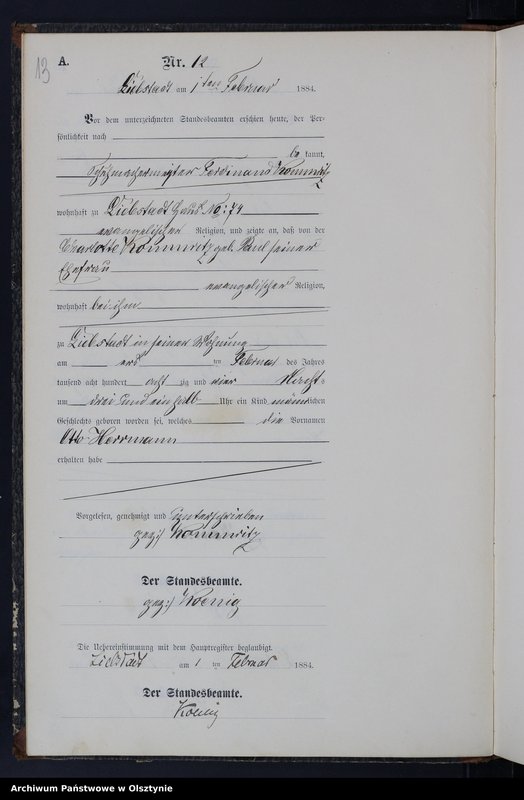 13
A.
Nr. 12
Liebstadt am 1ten Februar 1884.
Vor dem unterzeichneten Standesbeamten erschien heute, der Per-
sönlichkeit nach
be kannt,
Ferdinand Kommnitz
wohnhaft zu Liebstadt Haus No: 74
evangelischer Religion, und zeigte an, daß von der
Charlotte Kommnitz geb. Paul seiner
Ehefrau
evangelischer Religion,
wohnhaft bei ihm
zu Liebstadt in seiner Wohnung
am ersten Februar des Jahres
tausend acht hundert acht zig und vier Nachts
um drei und ein halb Uhr ein Kind männlichen
Geschlechts geboren worden sei, welches die Vornamen
Otto Herrmann
erhalten habe
Vorgelesen, genehmigt und unterschrieben
gez:) Kommnitz
Der Standesbeamte.
gez:) Koenig
Die Uebereinstimmung mit dem Hauptregister beglaubigt.
Liebstadt am 1 ten Februar 1884.
Der Standesbeamte.
Koenig
Archiwum Państwowe w Olsztynie